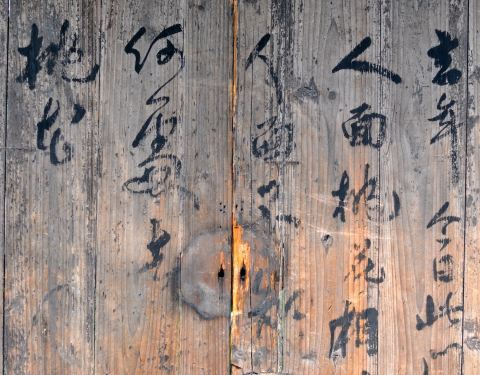 去年今日此
人面桃花相
人面
何處去
桃花